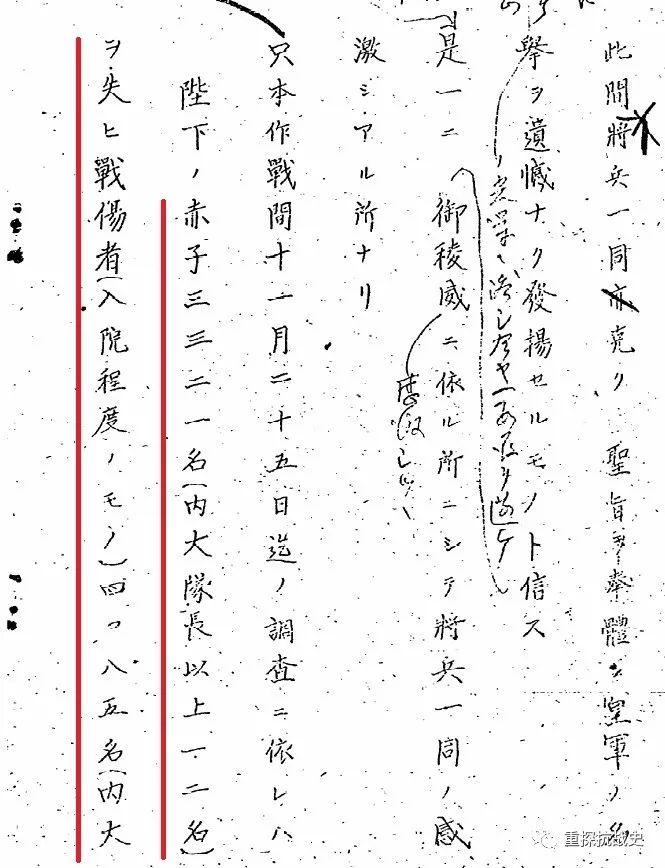 此間將兵一同亦克ク 聖旨ヲ奉體シ皇軍ノ名
擧ヲ遺憾ナク發揚セルモノト信ス
是一ニ 御稜威ニ依ル所ニシテ將兵一同ノ感
激シアル所ナリ
只本作戰間十一月二十五日迄ノ調査ニ依レハ
陛下ノ赤子三三二一名(内大隊長以上一二名)
ヲ失ヒ戰傷者(入院程度ノモノ)四〇八五名(内大
重探抗战史